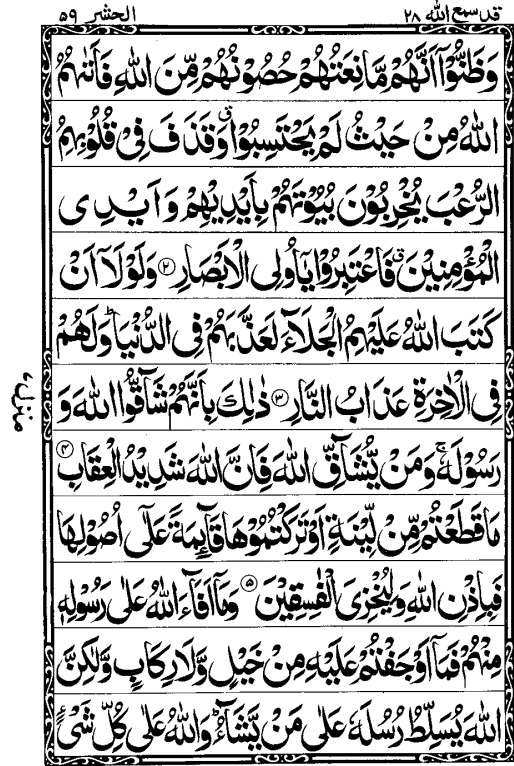 قد سمع الله ۲۸ الحشر ۵۹
وَظَنُّوْۤا اَنَّهُمْ مَّانِعَتُهُمْ حُصُوْنُهُمْ مِّنَ اللّٰهِ فَاَتٰىهُمُ
اللّٰهُ مِنْ حَيْثُ لَمْ يَحْتَسِبُوْا ۗ وَقَذَفَ فِيْ قُلُوْبِهِمُ
الرُّعْبَ يُخْرِبُوْنَ بُيُوْتَهُمْ بِاَيْدِيْهِمْ وَاَيْدِى
الْمُؤْمِنِيْنَ ۗ فَاعْتَبِرُوْا يٰۤاُولِى الْاَبْصَارِ ۝۲ وَلَوْلَاۤ اَنْ
كَتَبَ اللّٰهُ عَلَيْهِمُ الْجَلَاۤءَ لَعَذَّبَهُمْ فِى الدُّنْيَا ؕ وَلَهُمْ
فِى الْاٰخِرَةِ عَذَابُ النَّارِ ۝۳ ذٰلِكَ بِاَنَّهُمْ شَاۤقُّوا اللّٰهَ وَ
رَسُوْلَهٗ ۚ وَمَنْ يُّشَاۤقِّ اللّٰهَ فَاِنَّ اللّٰهَ شَدِيْدُ الْعِقَابِ ۝۴
مَا قَطَعْتُمْ مِّنْ لِّيْنَةٍ اَوْ تَرَكْتُمُوْهَا قَاۤئِمَةً عَلٰۤى اُصُوْلِهَا
فَبِاِذْنِ اللّٰهِ وَلِيُخْزِىَ الْفٰسِقِيْنَ ۝۵ وَمَاۤ اَفَاۤءَ اللّٰهُ عَلٰى رَسُوْلِهٖ
مِنْهُمْ فَمَاۤ اَوْجَفْتُمْ عَلَيْهِ مِنْ خَيْلٍ وَّلَا رِكَابٍ وَّلٰكِنَّ
اللّٰهَ يُسَلِّطُ رُسُلَهٗ عَلٰى مَنْ يَّشَاۤءُ ؕ وَاللّٰهُ عَلٰى كُلِّ شَىْءٍ
منزل ۷